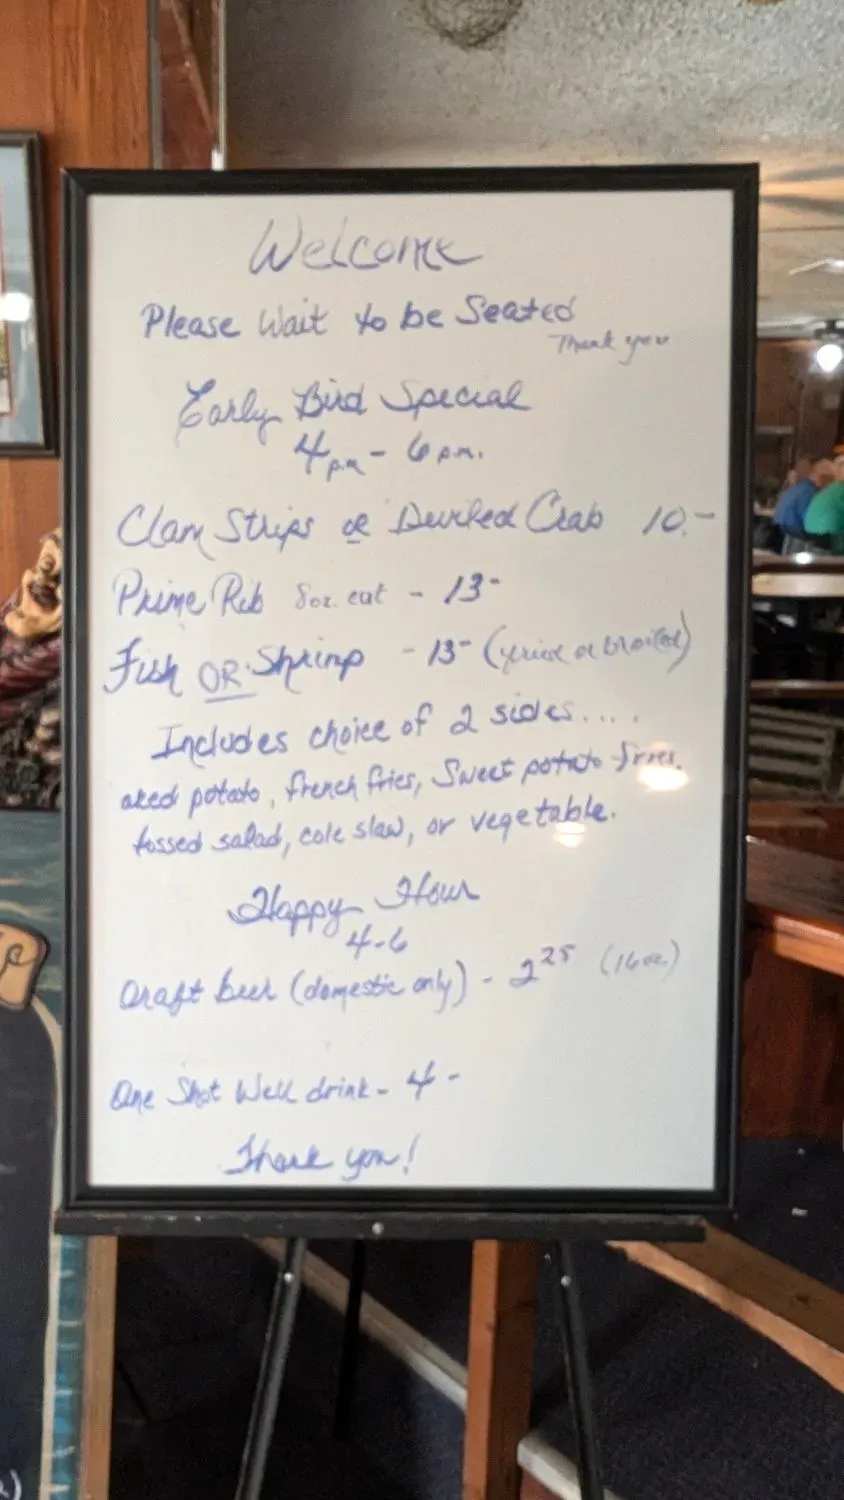 Welcome
Please Wait to be Seated
Thank you
Early Bird Special
4pm - 6 p.m.
Clam Strips or Deviled Crab 10.-
Prime Rib 8oz. cut - 13-
Fish OR Shrimp - 13- (fried or broiled)
Includes choice of 2 sides....
aked potato, french fries, Sweet potato fries,
tossed salad, cole slaw, or vegetable.
Happy Hour
4-6
Draft beer (domestic only) - 2 25 (16oz.)
One Shot Well drink - 4 -
Thank you!